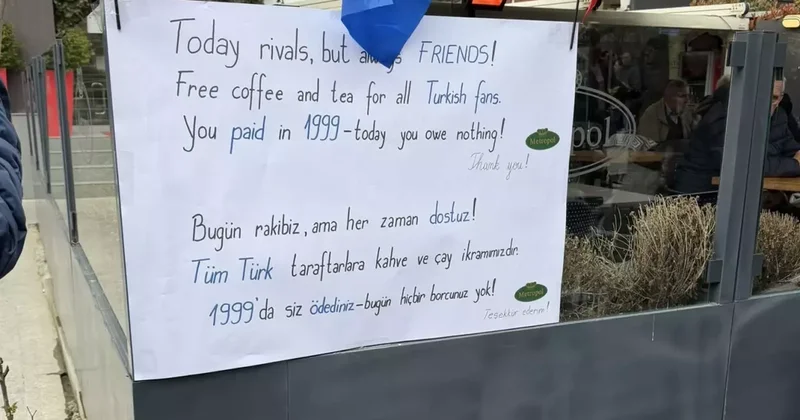 Today rivals, but always FRIENDS!
Free coffee and tea for all Turkish fans.
You paid in 1999-today you owe nothing!
Metropol
Thank you!
Bugün rakibiz, ama her zaman dostuz!
Tüm Türk taraftarlara kahve ve çay ikramımızdır.
1999'da siz ödediniz-bugün hiçbir borcunuz yok!
Metropol
Teşekkür ederim!
pol